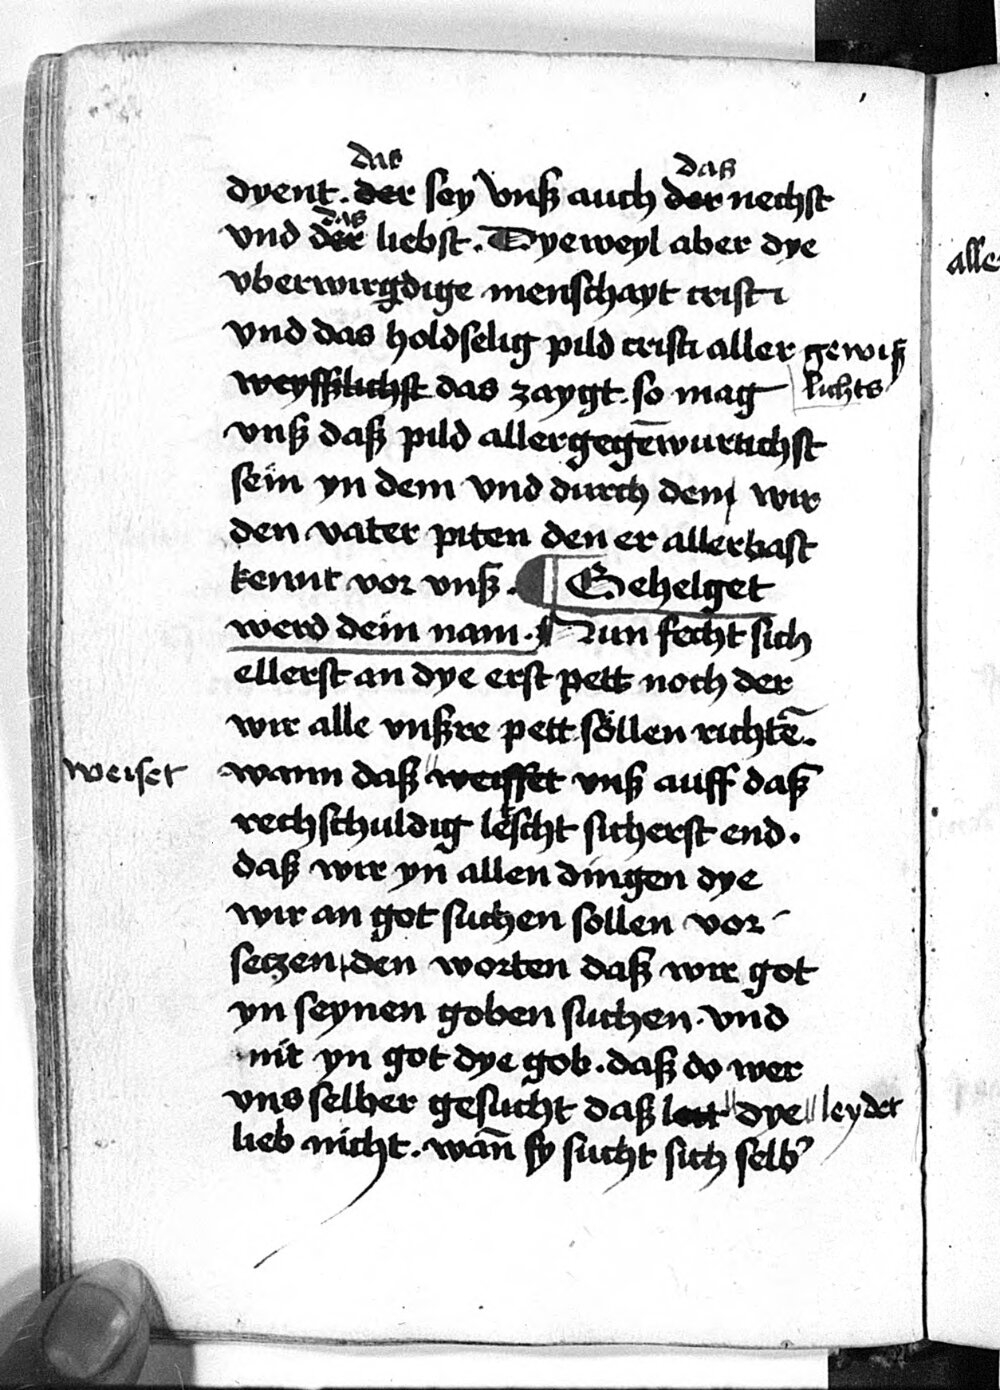 das daß
dyent. der sey vnß auch der nechst
das
vnd der liebst. Dyeweyl aber dye
vberwirgdige menschayt cristi
vnd das holdselig pild cristi aller gewiß
weyßlichst das zaygt. so mag lichts
vnß daß pild allergegēwurtichst
sein yn dem vnd durch dem wir
den vater piten den er allerbast
kennt vor vnß. Gehelget
werd dein nam. Nun fecht sich
ellerst an dye erst pett noch der
wir alle vnßre pett söllen richtē.
weiset wann daß weisset vnß auff daß
rechschuldig lescht sicherst end.
daß wir yn allen dingen dye
wir an got suchen sollen vor
seczen den worten daß wir got
yn seynen goben suchen. vnd
nit yn got dye gob. daß do wer
vns selber gesucht daß leit dye leydet
lieb nicht. wañ sy sucht sich selb
alle